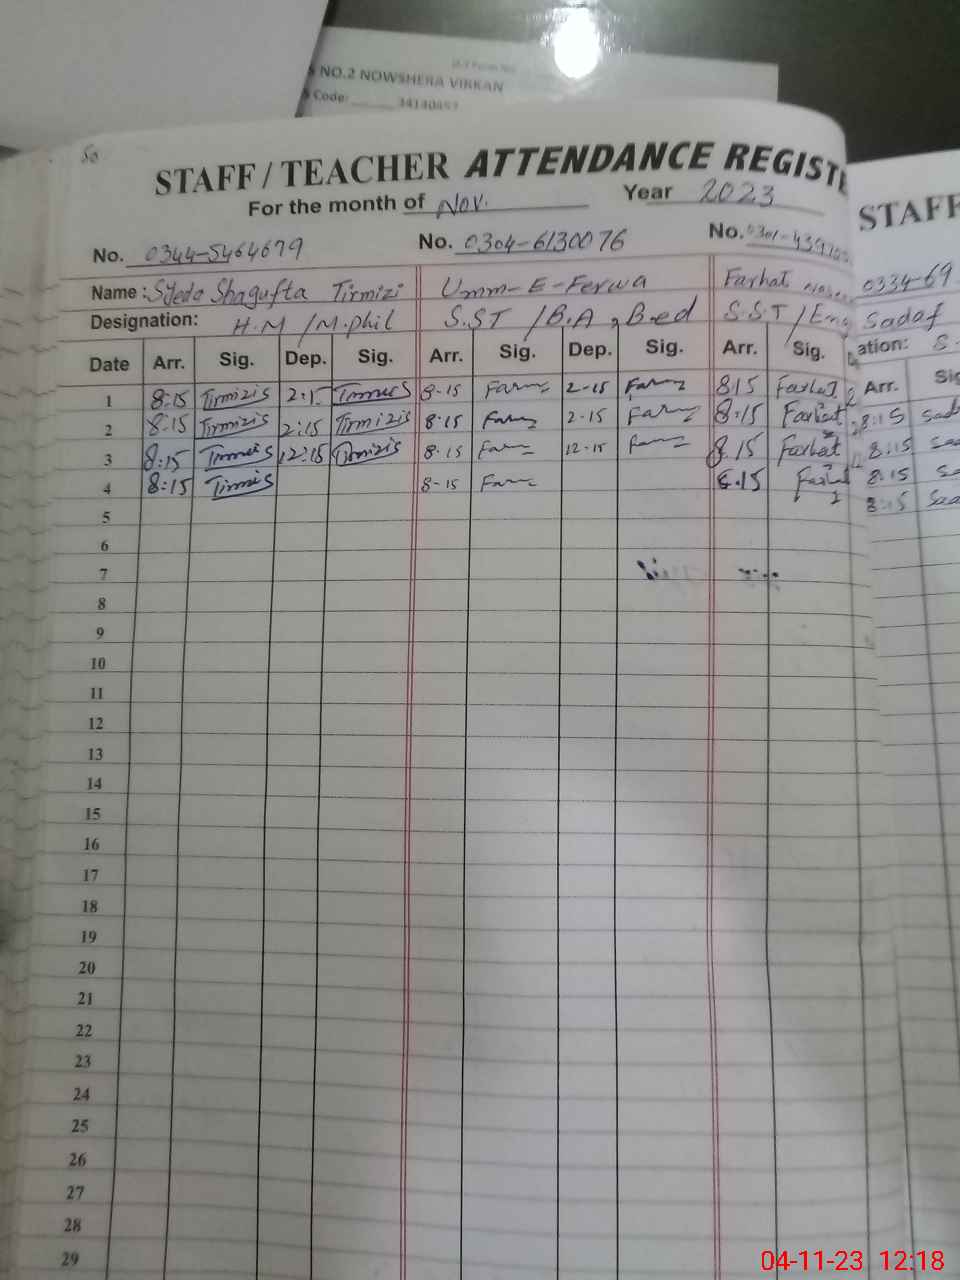 NO.2 NOWSHERA VIRKAN
Code: 34140457
50
STAFF / TEACHER ATTENDANCE REGISTE
For the month of Nov. Year 2023
No. 0344-5464679 No. 0304-6130076 No.
Name: Syeda Shagufta Tirmizi Umm-E-Ferwa Farhat
Designation: H.M / M.phil S.S.T / B.A, B.ed S.S.T / Eng
Date Arr. Sig. Dep. Sig. Arr. Sig. Dep. Sig. Arr. Sig.
1 8:15 Tirmizis 2:15 Tirmizis 8-15 2-15 815 Farhat
2 8:15 Tirmizis 2:15 Tirmizis 8-15 2-15 8:15 Farhat
3 8:15 Tirmizis 12:15 Tirmizis 8-15 12-15 8.15 Farhat
4 8:15 Tirmizis 8-15 8.15 Farhat
5
6
7
8
9
10
11
12
13
14
15
16
17
18
19
20
21
22
23
24
25
26
27
28
29
STAFF
0334-69
Sadaf
ation: S.
Arr. Sig
8:15 Sad
8:15 Saa
8:15 Sa
8:15 Saa
04-11-23 12:18